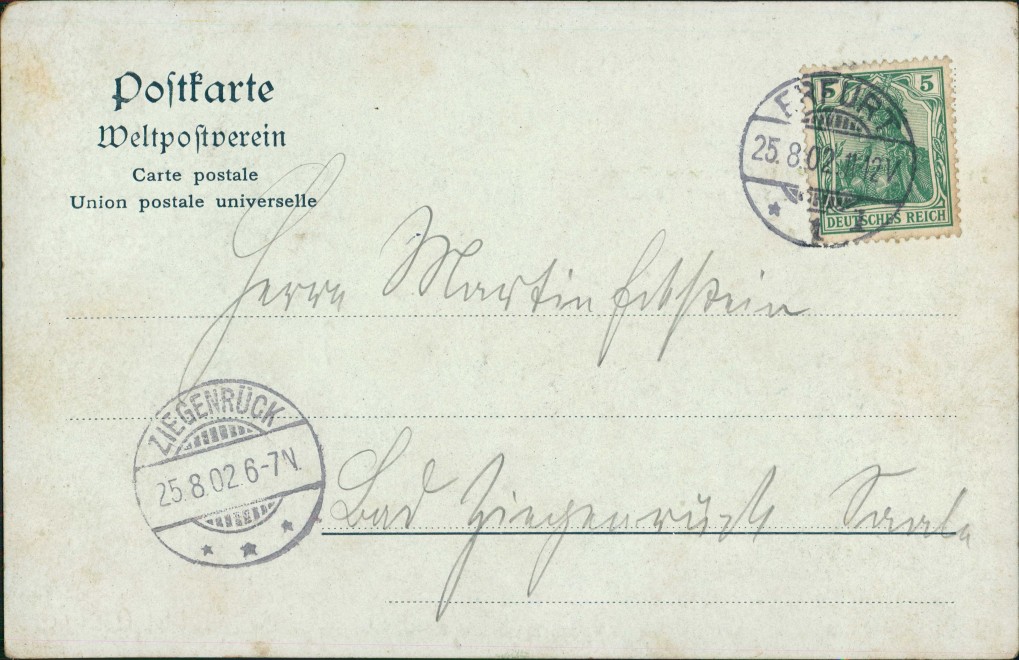 Postkarte
Weltpostverein
Carte postale
Union postale universelle
5 5
DEUTSCHES REICH
ERFURT
25.8.02.11-12V
* 1 1
Herrn Martin Ebstein
ZIEGENRÜCK
25.8.02.6-7N.
* * *
Bad Ziegenrück Saale